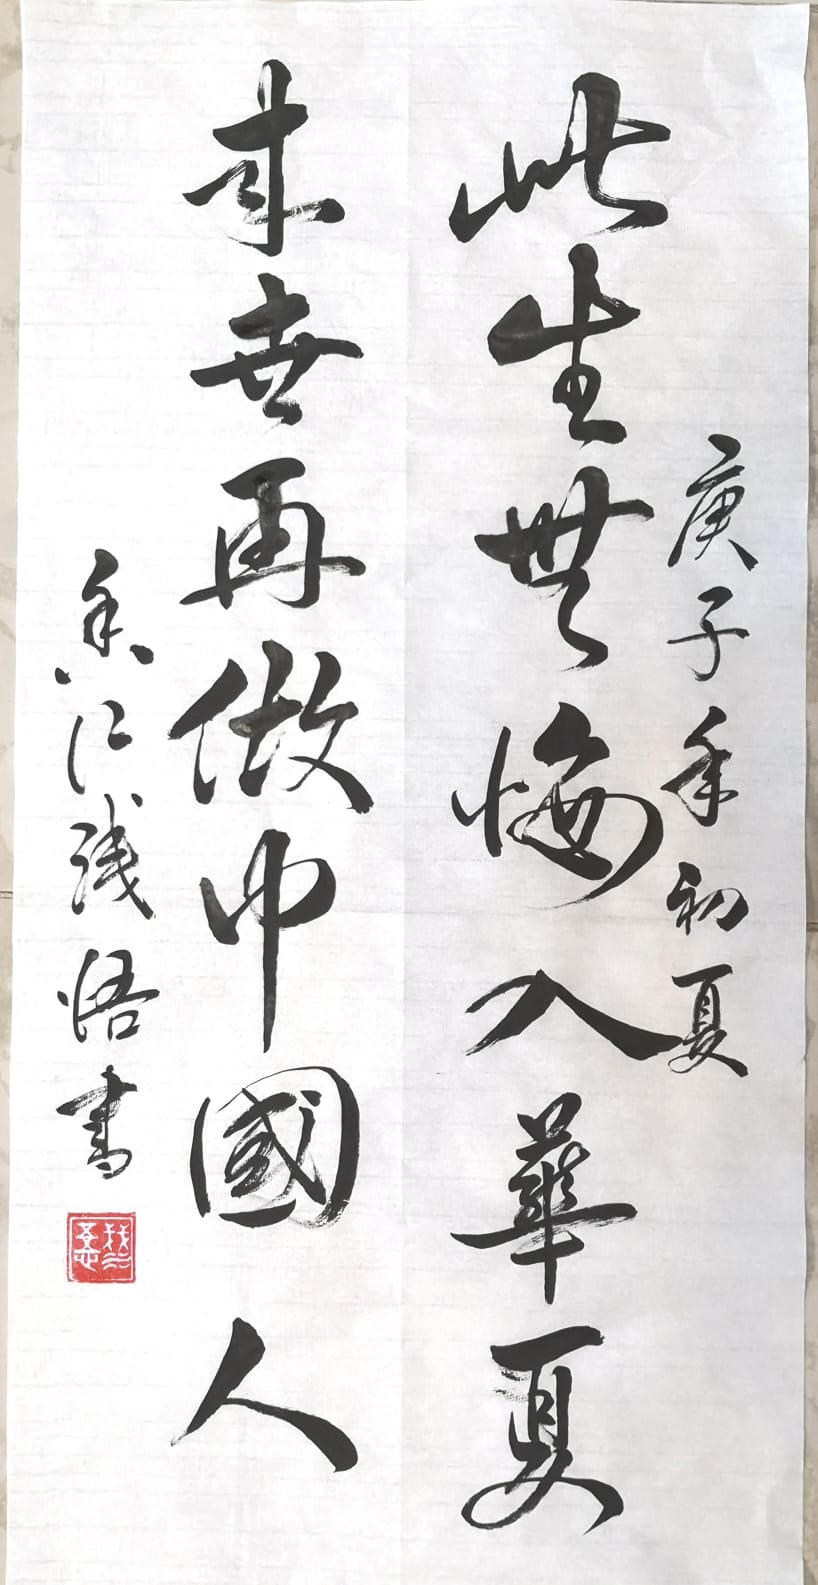 庚子年初夏
此生無悔入華夏
来世再做中國人
香江浅悟書